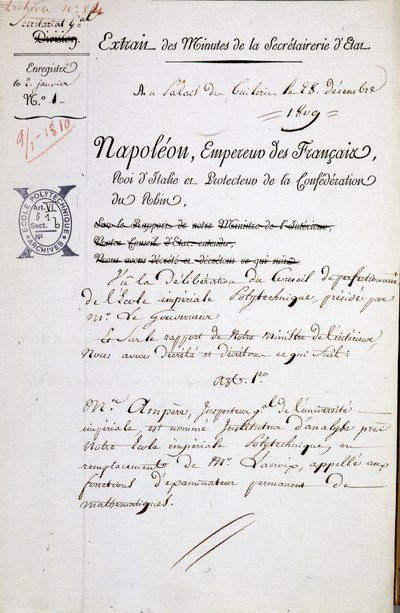 Archives No. 84
Secrétariat Gal
Division.
Enregistré
le 2. janvier
No. 1
9/1-1810
ECOLE POLYTECHNIQUE
ARCHIVES
Art. VI
§ 1
Sect. b
No
X
Extrait des Minutes de la Secrétairerie d'Etat.
Au Palais des Tuileries le 28 décembre
1809
Napoléon, Empereur des Français,
Roi d'Italie et Protecteur de la Confédération
du Rhin,
Sur le Rapport de notre Ministre de l'Intérieur,
Notre Conseil d'Etat entendu,
Nous avons décrété et décrétons ce qui suit:
Vu la délibération du Conseil de perfectionnement
de l'Ecole impériale Polytechnique, présidé par
Mr. Le Gouverneur
Et Sur le rapport de Notre Ministre de l'intérieur
Nous avons décrété et décrétons ce qui Suit:
Art. 1er
Mr. Ampère, Inspecteur gal de l'université
impériale est nommé Instituteur d'analyse près
Notre Ecole impériale Polytechnique, en
remplacement de Mr. Lacroix, appellé aux
fonctions d'examinateur permanent de
mathématiques.